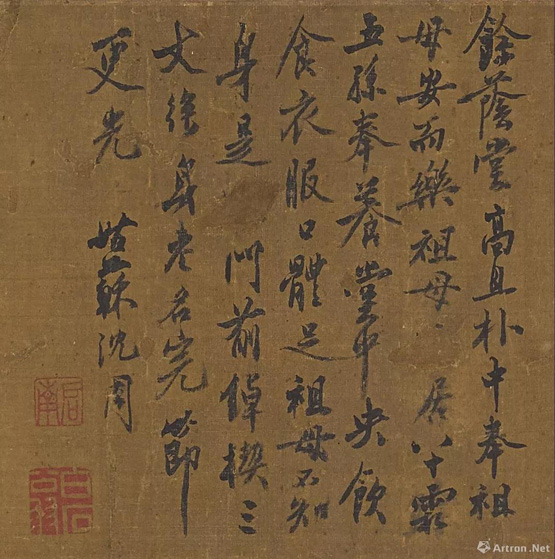 餘蔭堂高且朴中奉祖
母安而樂祖母居八十霜
五孫奉養堂中央飲
食衣服口體足祖母不知
身是門前倬楔三
丈徐身老名完節
更光
姑蘇沈周
啟南
石田
Artron.Net